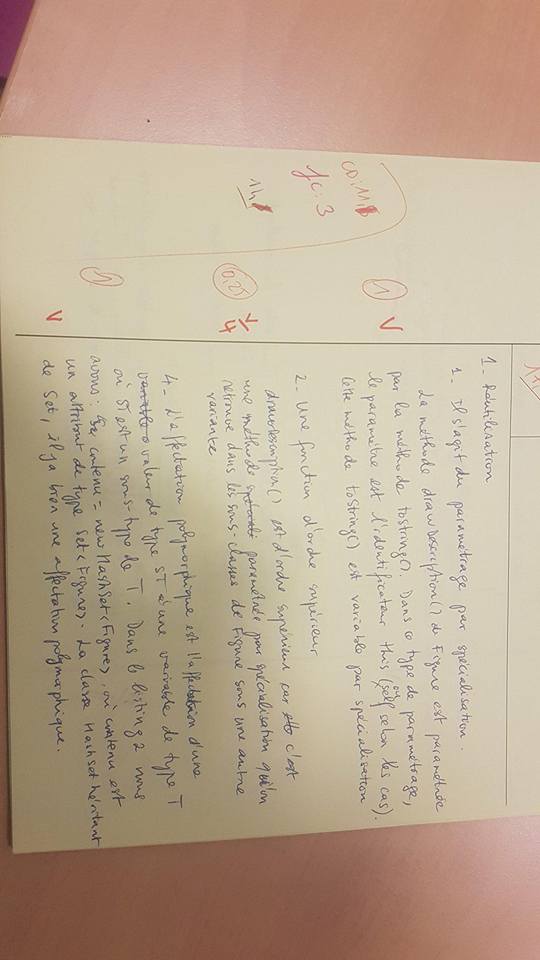 1- Réutilisation
1. Il s'agit du paramétrage par spécialisation.
La méthode drawDescription() de Figure est paramétrée
par la méthode toString(). Dans ce type de paramétrage,
le paramètre est l'identificateur this (ou self selon les cas).
Cette méthode toString() est variable par spécialisation
1
V
CO: 11,
fc: 3
14
2- Une fonction d'ordre supérieur
drawDescription() est d'ordre supérieur car c'est
une méthode paramétrée par spécialisation qu'on
retrouve dans les sous-classes de Figure sous une autre
variante
0,25
V/4
4- L'affectation polymorphique est l'affectation d'une
valeur de type ST à une variable de type T
où ST est un sous-type de T. Dans le listing 2 nous
avons: contenu = new HashSet<Figure>, où contenu est
un attribut de type Set<Figure>. La classe HashSet héritant
de Set, il y a bien une affectation polymorphique.
1
V